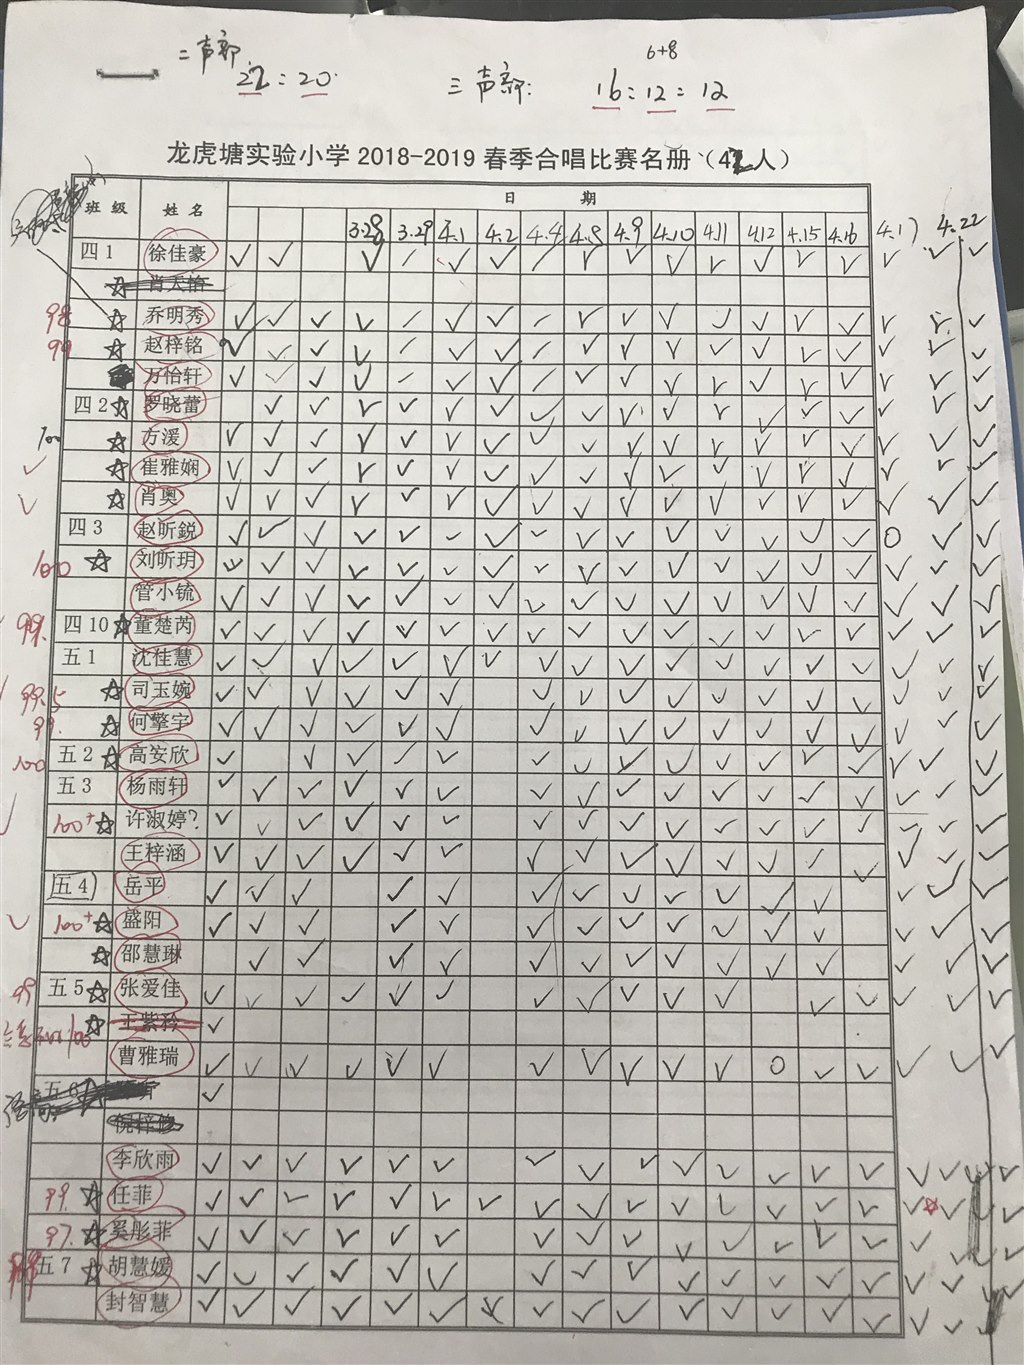 二声部
22:20
6+8
三声部: 16:12:12
龙虎塘实验小学 2018-2019 春季合唱比赛名册 (42人)
班 级 姓 名 日 期
3.28 3.29 4.1 4.2 4.4 4.8 4.9 4.10 4.11 4.12 4.15 4.16 4.17 4.22
四1 徐佳豪
98 乔明秀
99 赵梓铭
万怡轩
四2 罗晓蕾
100 方湲
崔雅娴
肖奥
四3 赵昕锐
100 刘昕玥
管小锍
99. 四10 董楚芮
五1 沈佳慧
99.5 司玉婉
99. 何擎宇
100 五2 高安欣
五3 杨雨轩
100+ 许淑婷?
王梓涵
五4 岳平
100+ 盛阳
邵慧琳
99 五5 张爱佳
王紫矜
曹雅瑞
五6
李欣雨
99. 任菲
97. 奚彤菲
五7 胡慧媛
封智慧